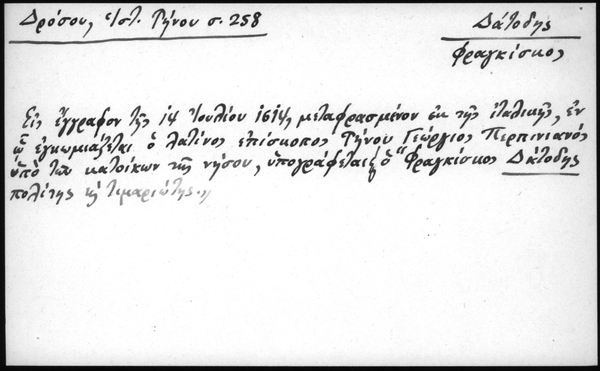 Δρόσου, Ἱστ. Τήνου σ. 258
Δάτοδης
Φραγκίσκος
Εἰς ἔγγραφον τῆς 14 Ἰουλίου 1614, μεταφρασμένον ἐκ τῆς ἰταλικῆς, ἐν
ᾧ ἐγκωμιάζεται ὁ λατῖνος ἐπίσκοπος Τήνου Γεώργιος Περπινιανός
ὑπὸ τῶν κατοίκων τῆς νήσου, ὑπογράφεται ὁ "Φραγκίσκος Δάτοδης
πολίτης κὴ τιμαριώτης."